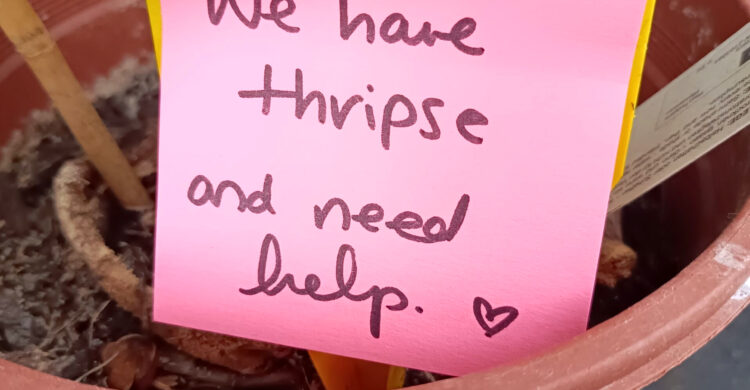 We have
thripse
and need
help. ♡